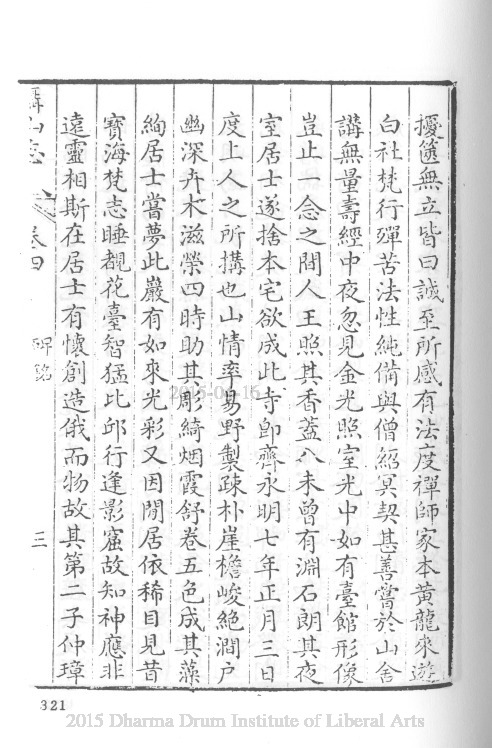 擾篋無立皆曰誠至所感有法度禪師家本黃龍來遊
白社梵行殫苦法性純備與僧紹冥契甚善嘗於山舍
講無量壽經中夜忽見金光照室光中如有臺館形像
豈止一念之間人王照其香蓋八未曾有淵石朗其夜
室居士遂捨本宅欲成此寺卽齊永明七年正月三日
度上人之所搆也山情率易野製疎朴崖檐峻絕澗户
幽深卉木滋榮四時助其彫綺烟霞舒卷五色成其藻
絢居士嘗夢此巖有如來光彩又因閒居依稀目見昔
寶海梵志睡覩花臺智猛比邱行逢影窟故知神應非
遠靈相斯在居士有懷創造俄而物故其第二子仲璋
山志
卷四
碑銘
三
2015-04-15
321
2015 Dharma Drum Institute of Liberal Arts